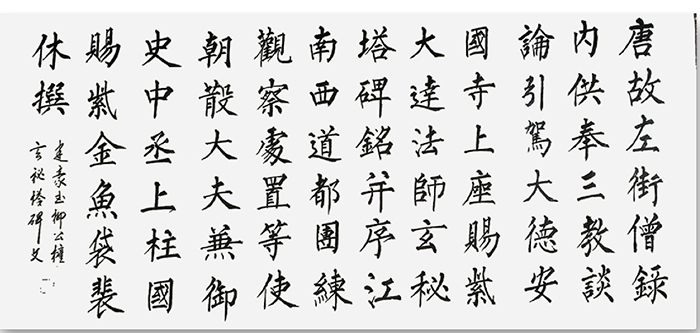 唐故左街僧錄
内供奉三教談
論引駕大德安
國寺上座賜紫
大達法師玄秘
塔碑銘并序江
南西道都團練
觀察處置等使
朝散大夫兼御
史中丞上柱國
賜紫金魚袋裴
休撰
建豪书柳公權
玄秘塔碑文